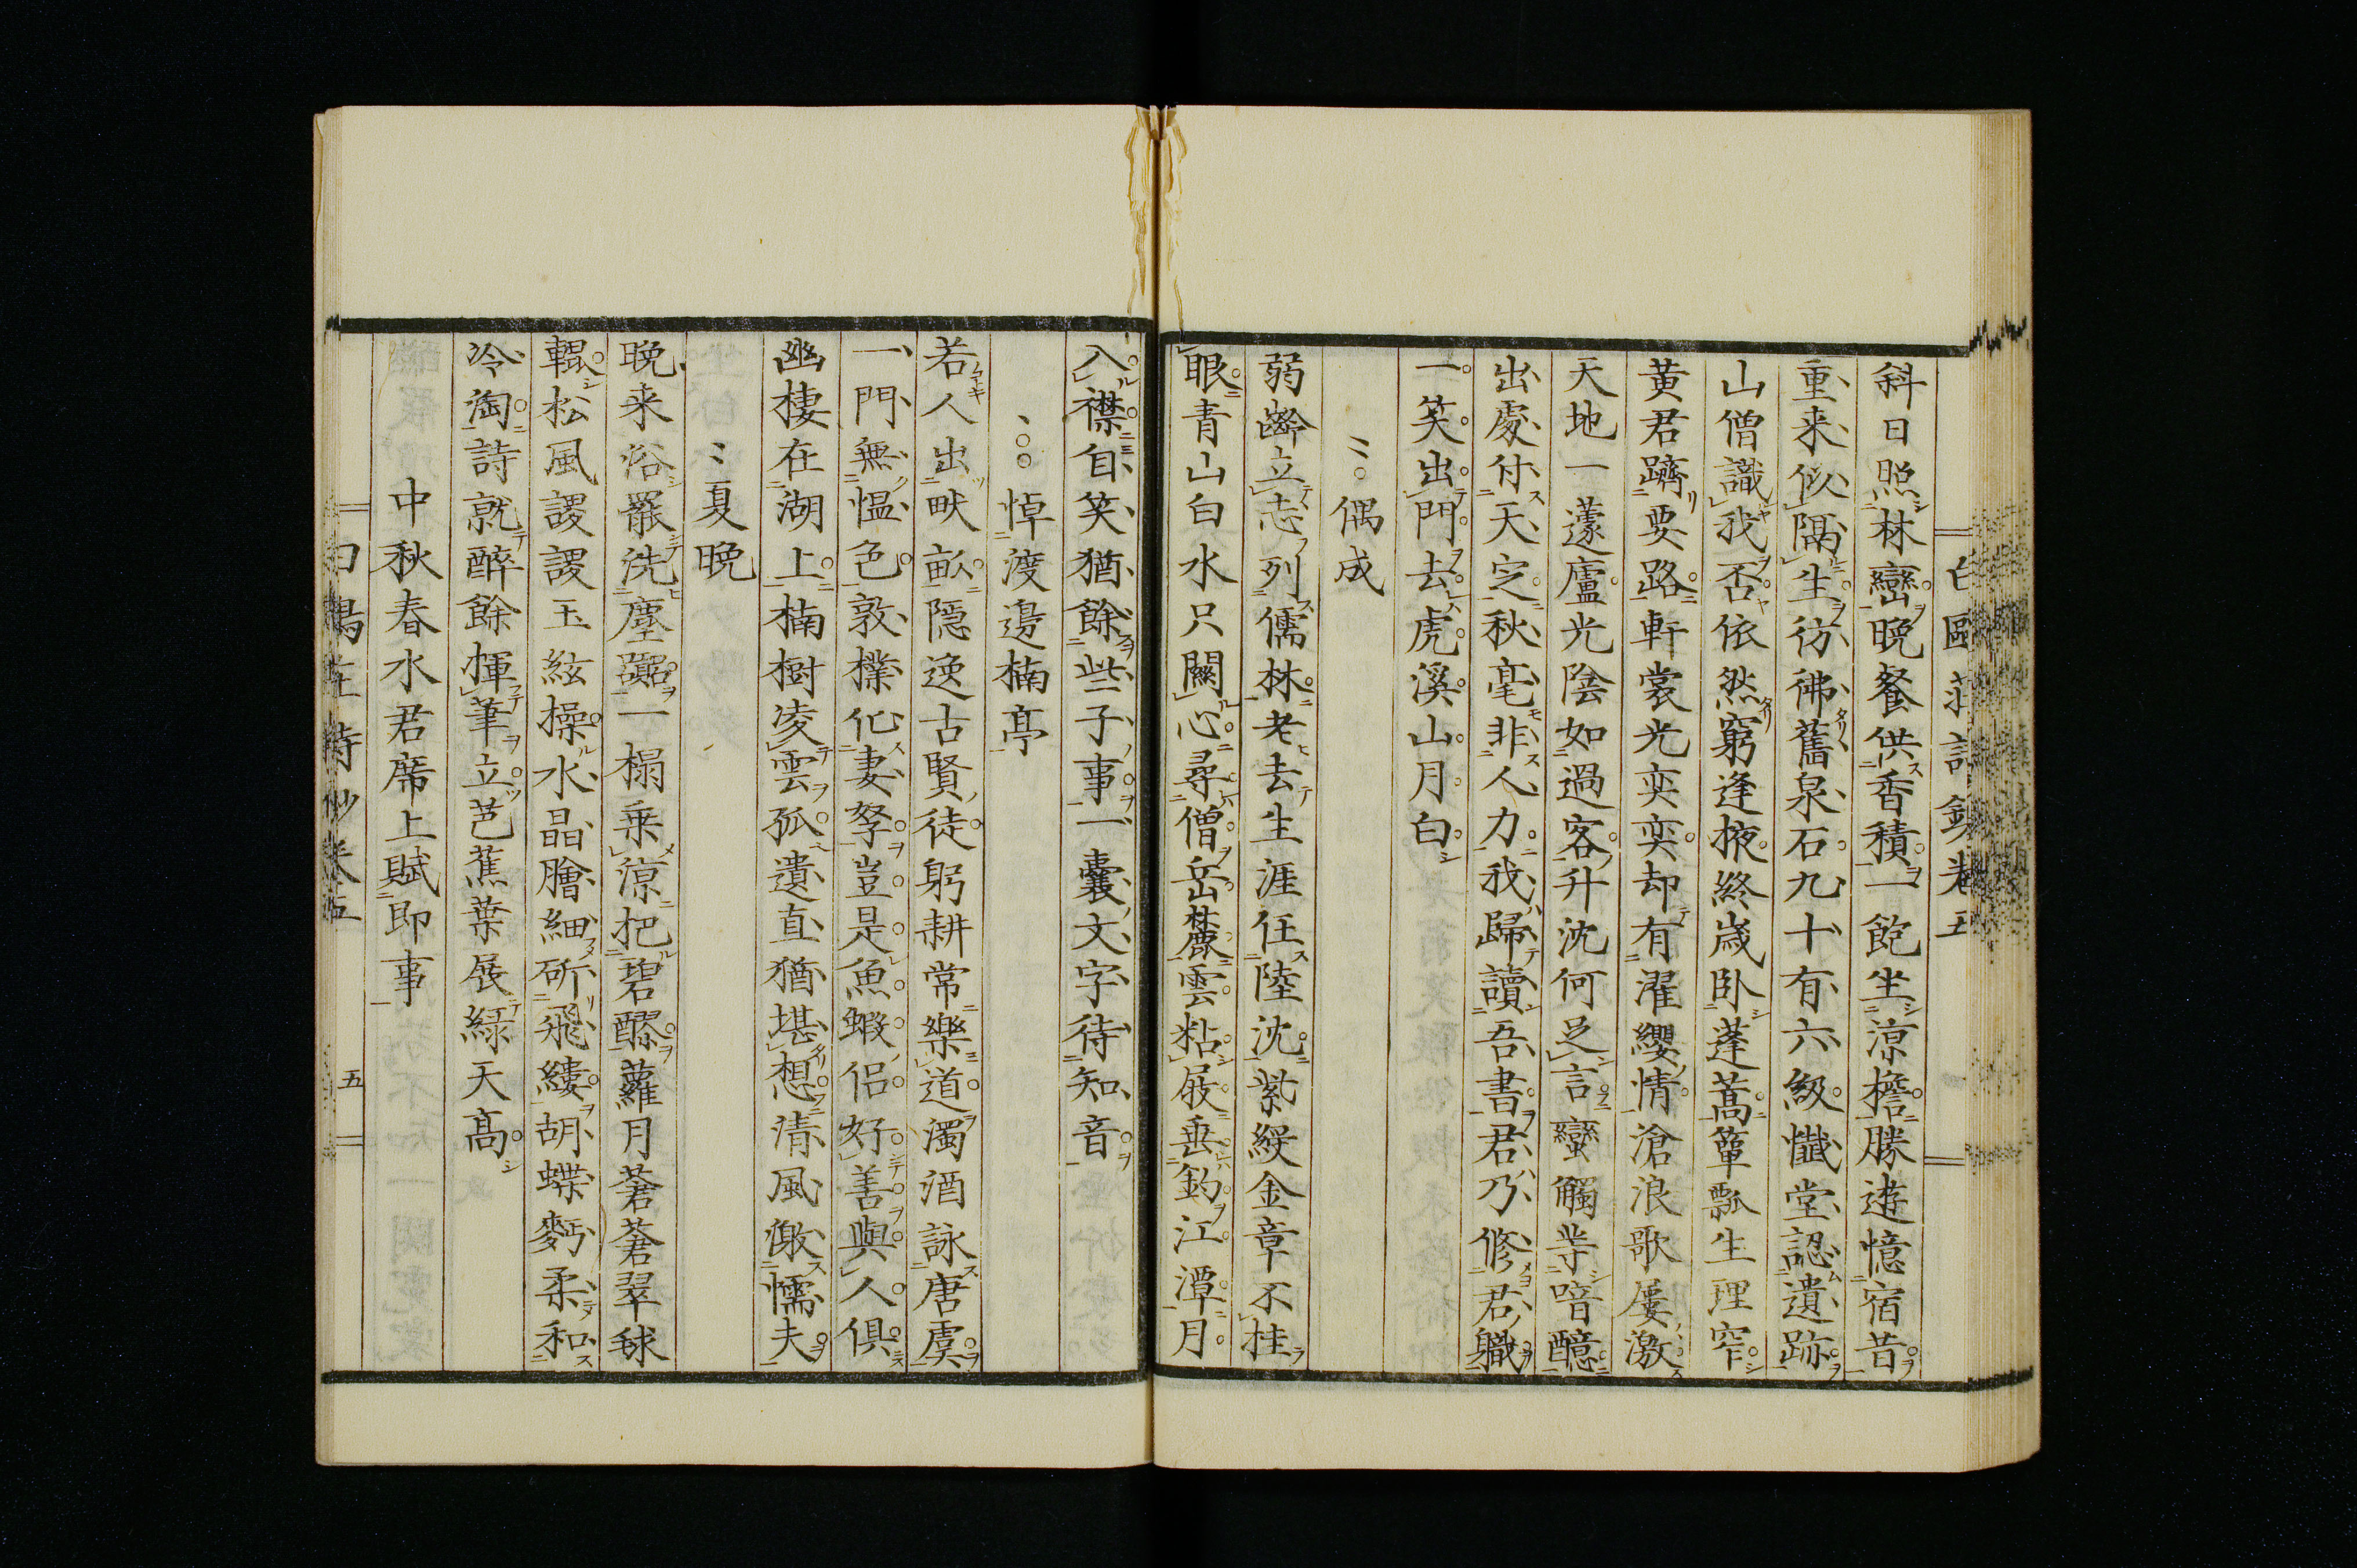 白鷗莊詩鈔卷五
科日照林巒晩餐供香積一飽坐涼檐勝遊憶宿昔
重来似隔生彷彿舊泉石九十有六級懺堂認遺跡
山僧識我否依然窮逢掖終歳臥蓬蒿簞瓢生理窄
黃君躋要路軒裳光奕奕却有濯纓情滄浪歌屢激
天地一蘧廬光陰如過客升沈何足言蠻觸等喑醷
出處付天定秋毫非人力我歸讀吾書君乃修君職
一笑出門去虎溪山月白
偶成
弱齡立志列儒林老去生涯任陸沈紫綬金章不桂
眼青山白水只關心尋僧岳麓雲粘屐垂釣江潭月
入襟自笑猶餘些子事一囊文字待知音
悼渡邊楠亭
若人出畎畝隱逸古賢徒躬耕常樂道濁酒詠唐虞
一門無愠色敦樸化妻孥豈是魚蝦侶好善與人俱
幽棲在湖上楠樹凌雲孤遺直猶堪想清風儆懦夫
夏晩
晩来浴罷洗塵躁一榻乗涼把碧醪蘿月蒼蒼翠毬
輥松風謖謖玉絃操水晶膾細斫飛縷胡蝶麪柔和
冷淘詩就醉餘揮筆立芭蕉葉展緑天高
中秋春水君席上賦即事
五